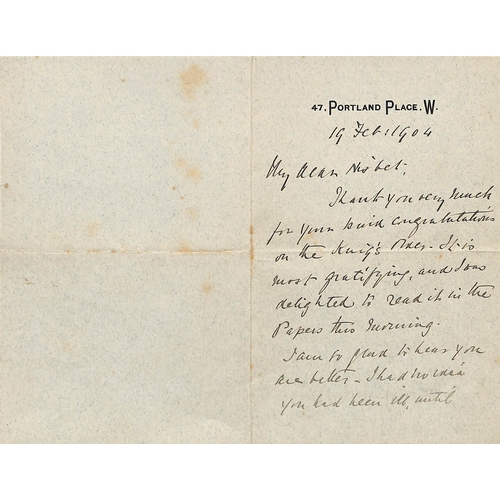 47, PORTLAND PLACE. W.
19 Feb: 1904
My dear Nisbet,
Thank you very much
for your kind congratulations
on the King's Order - It is
most gratifying, and I was
delighted to read it in the
Papers this Morning.
I am so glad to hear you
are better - I had no idea
you had been ill, until